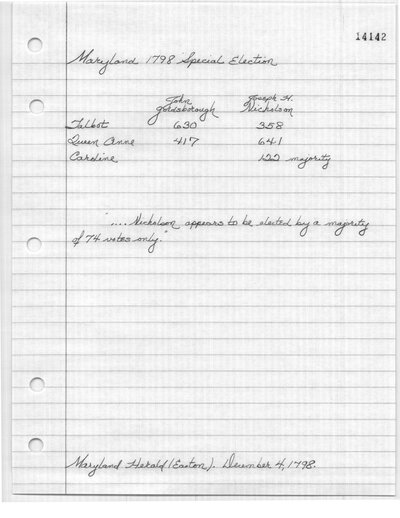 14142
Maryland 1798 Special Election
John Joseph H.
Goldsborough Nicholson
Talbot 630 358
Queen Anne 417 641
Caroline 122 majority
".... Nicholson appears to be elected by a majority
of 74 votes only."
Maryland Herald (Easton). December 4, 1798.